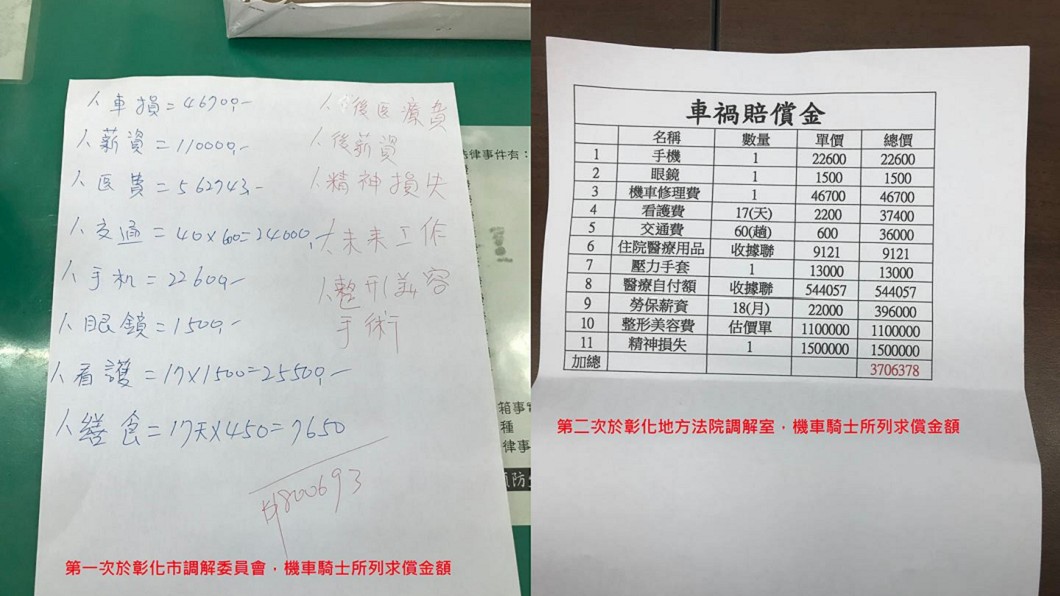 車損=46700.-
薪資=110000.-
医費=562743.-
交通=40×600=24000.
手机=22600.-
眼鏡=1500.-
看護=17×1500=25500.-
膳食=17天×450=7650
#800693
後医療費
後薪資
精神損失
未來工作
整形美容
手術
律事件有：
箱事
種
律事
預防
第一次於彰化市調解委員會，機車騎士所列求償金額
車禍賠償金
名稱 數量 單價 總價
1 手機 1 22600 22600
2 眼鏡 1 1500 1500
3 機車修理費 1 46700 46700
4 看護費 17(天) 2200 37400
5 交通費 60(趟) 600 36000
6 住院醫療用品 收據聯 9121 9121
7 壓力手套 1 13000 13000
8 醫療自付額 收據聯 544057 544057
9 勞保薪資 18(月) 22000 396000
10 整形美容費 估價單 1100000 1100000
11 精神損失 1 1500000 1500000
加總 3706378
第二次於彰化地方法院調解室，機車騎士所列求償金額